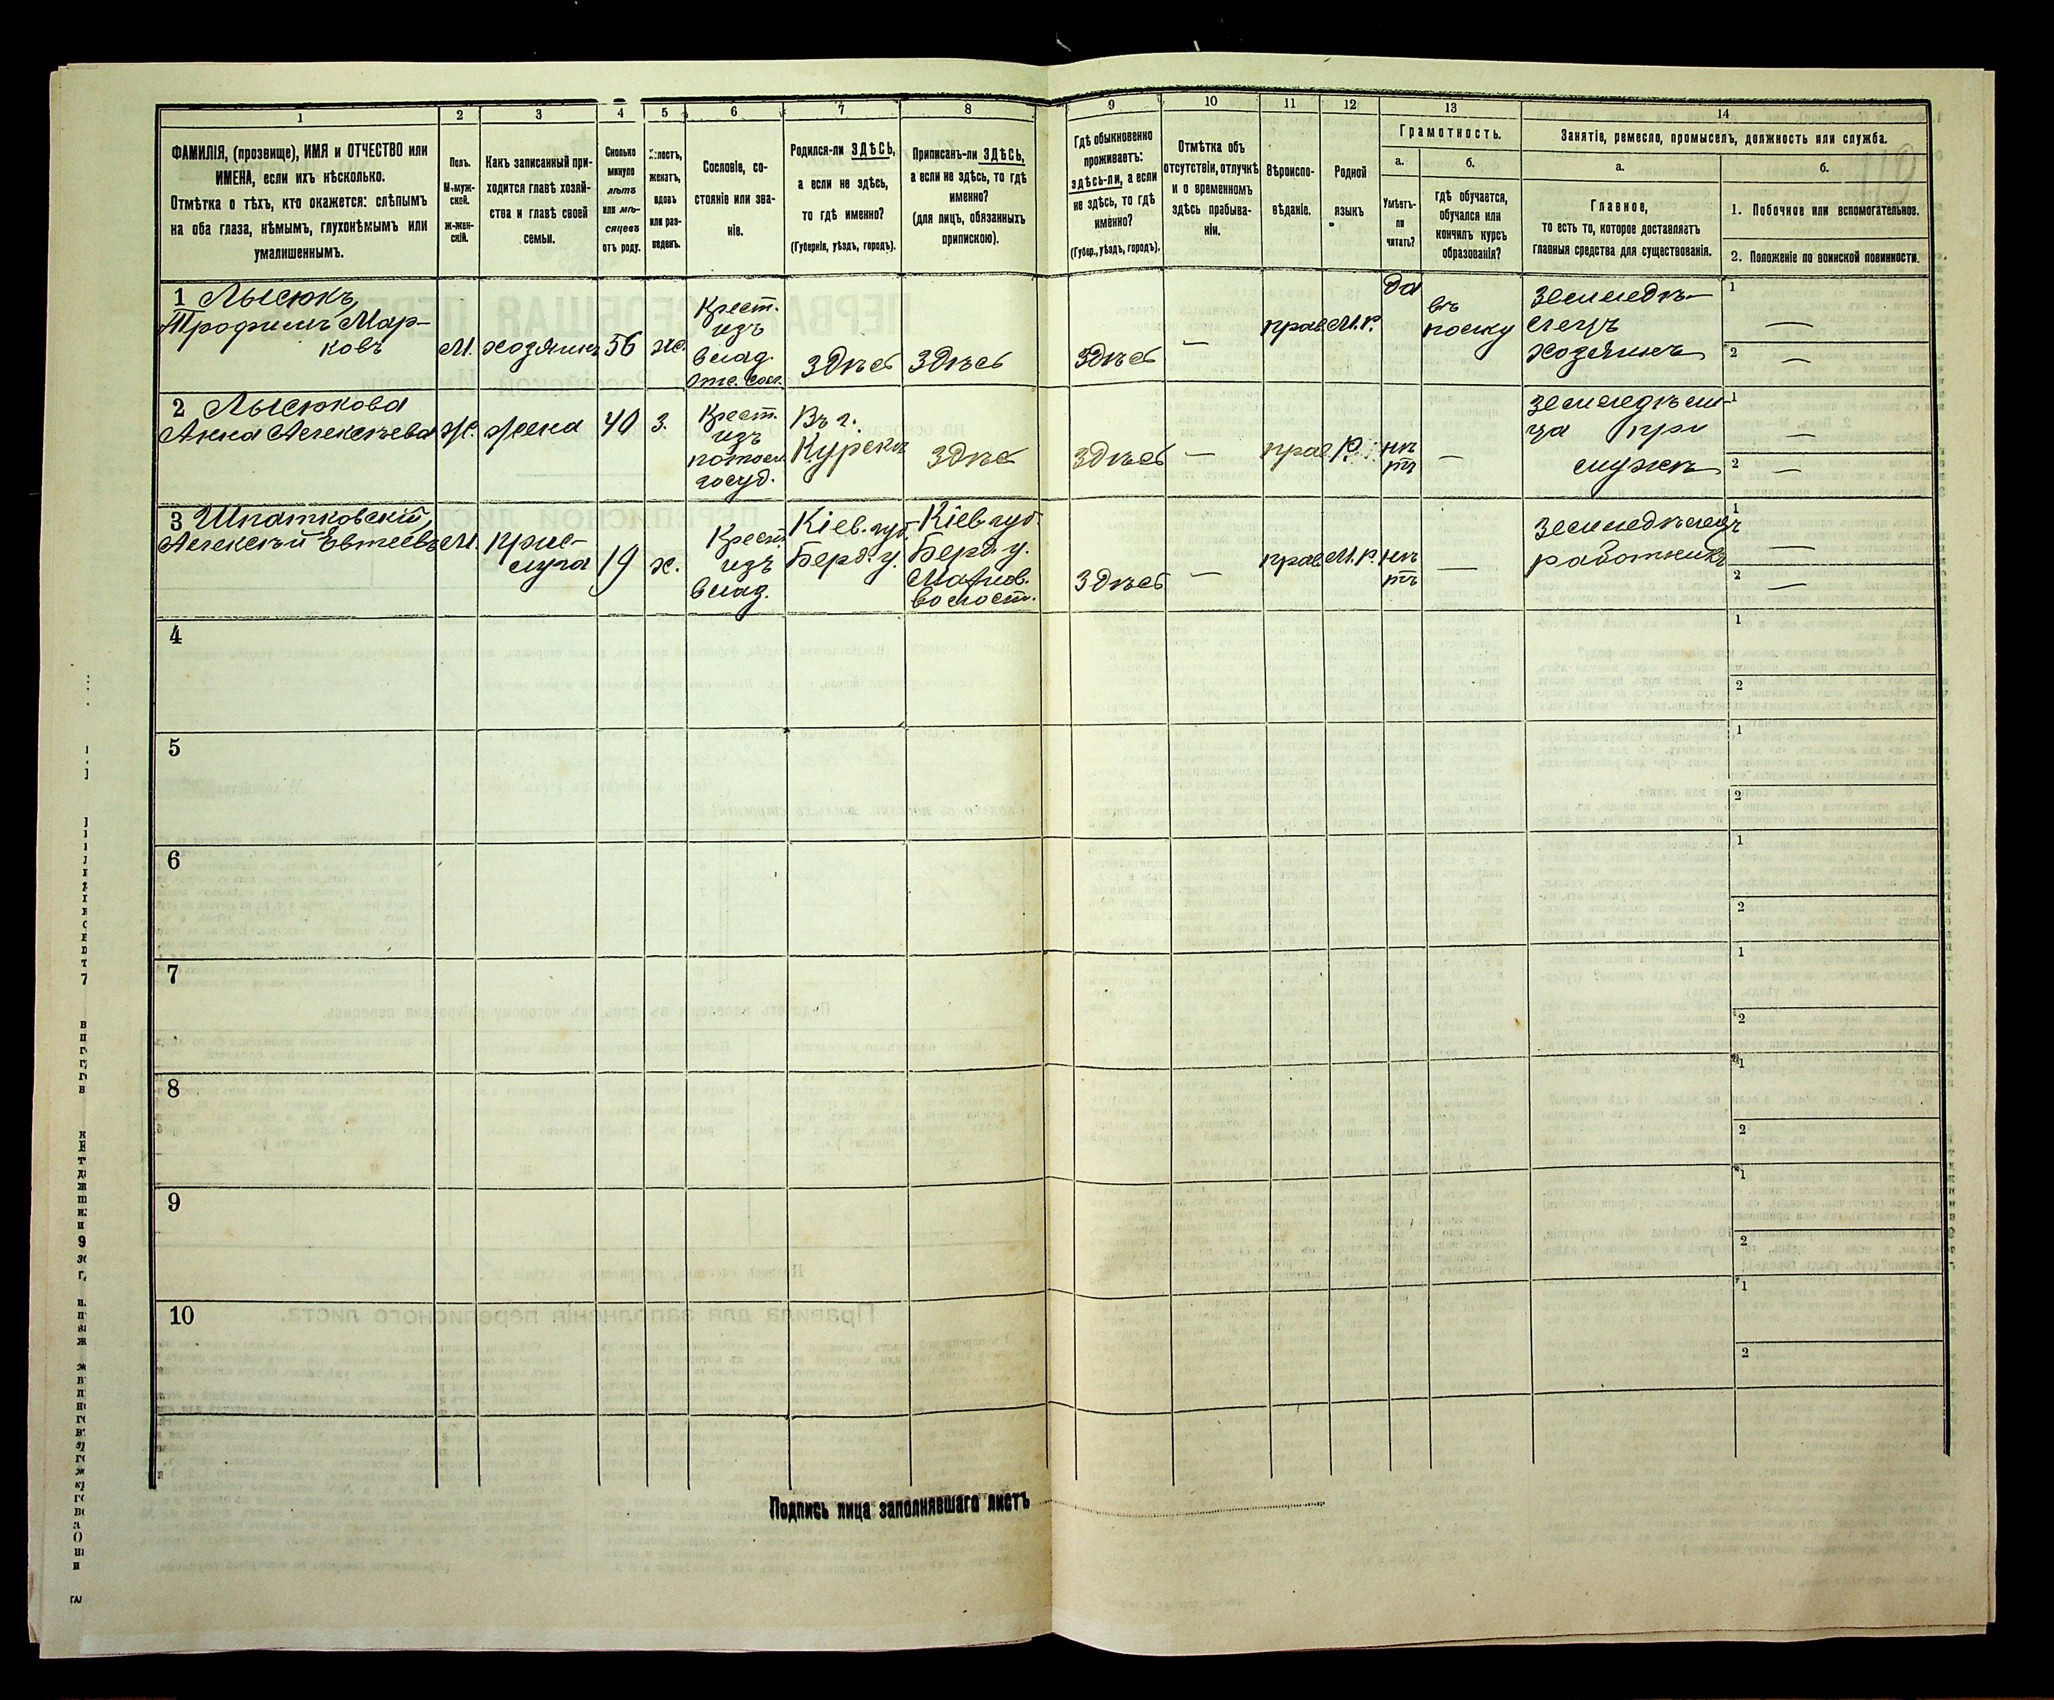 1
2
3
4
5
6
7
8
9
10
11
12
13
14
ФАМИЛІЯ, (прозвище), ИМЯ и ОТЧЕСТВО или
ИМЕНА, если ихъ нѣсколько.
Отмѣтка о тѣхъ, кто окажется: слѣпымъ
на оба глаза, нѣмымъ, глухонѣмымъ или
умалишеннымъ.
Полъ.
М-муж-
ской.
Ж-жен-
скій.
Какъ записанный при-
ходится главѣ хозяй-
ства и главѣ своей
семьи.
Сколько
минуло
лѣтъ
или мѣ-
сяцевъ
отъ роду.
Холостъ,
женатъ,
вдовъ
или раз-
веденъ.
Сословіе, со-
стояніе или зва-
ніе.
Родился-ли ЗДѢСЬ,
а если не здѣсь,
то гдѣ именно?
(Губернія, уѣздъ, городъ).
Приписанъ-ли ЗДѢСЬ,
а если не здѣсь, то гдѣ
именно?
(для лицъ, обязанныхъ
припискою).
Гдѣ обыкновенно
проживаетъ:
здѣсь-ли, а если
не здѣсь, то гдѣ
именно?
(Губер., уѣздъ, городъ).
Отмѣтка объ
отсутствіи, отлучкѣ
и о временномъ
здѣсь пребыва-
ніи.
Вѣроиспо-
вѣданіе.
Родной
языкъ
Грамотность.
а.
Умѣетъ-
ли
читать?
б.
гдѣ обучается,
обучался или
кончилъ курсъ
образованія?
Занятіе, ремесло, промыселъ, должность или служба.
а.
Главное,
то есть то, которое доставляетъ
главныя средства для существованія.
б.
1. Побочное или вспомогательное.
2. Положеніе по воинской повинности.
1 Лысюкъ,
Трофимъ Мар-
ковъ
М.
хозяинъ
56
ж.
Крест.
изъ
влад.
Здѣсь
Здѣсь
Здѣсь
—
прав.
М.р.
да
въ
полку
земледѣ-
лецъ
хозяинъ
1 —
2 —
2 Лысюкова
Анна Алексѣева
Ж.
жена
40
з.
Крест.
изъ
госуд.
Въ г.
Курскѣ
Здѣсь
Здѣсь
—
прав.
Р.
нѣ
тъ
—
земледѣли-
ца при
мужѣ
1 —
2 —
3 Шпатковскій,
Алексѣй Евтеевъ
М.
прис-
луга
19
х.
Крест.
изъ
влад.
Кіев. губ.
Берд. у.
Кіев. губ.
Берд. у.
волост.
Здѣсь
—
прав.
М.р.
нѣ
тъ
—
земледѣлецъ
работникъ
1 —
2 —
4
1
2
5
1
2
6
1
2
7
1
2
8
1
2
9
1
2
10
1
2
Подпись лица заполнявшаго листъ